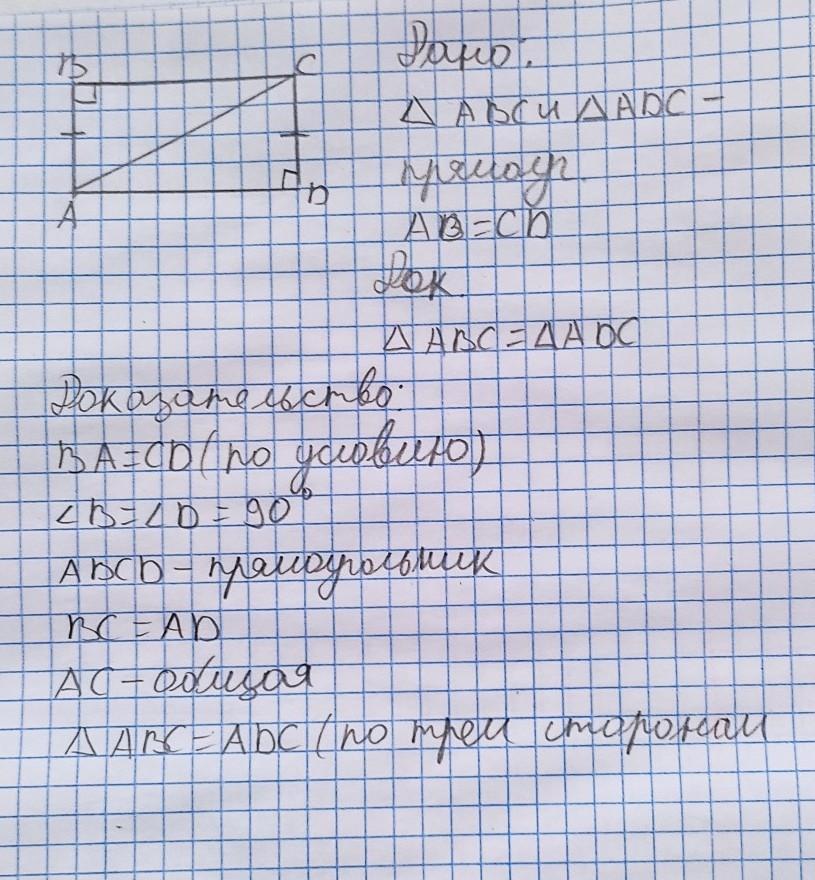 B
C
A
D
Дано:
△ ABC и △ADC –
прямоуг.
AB=CD
Док.
△ ABC = △ADC
Доказательство:
BA=CD (по условию)
∠B=∠D = 90°
ABCD – прямоугольник
BC = AD
AC – общая
△ ABC = ADC (по трем сторонам